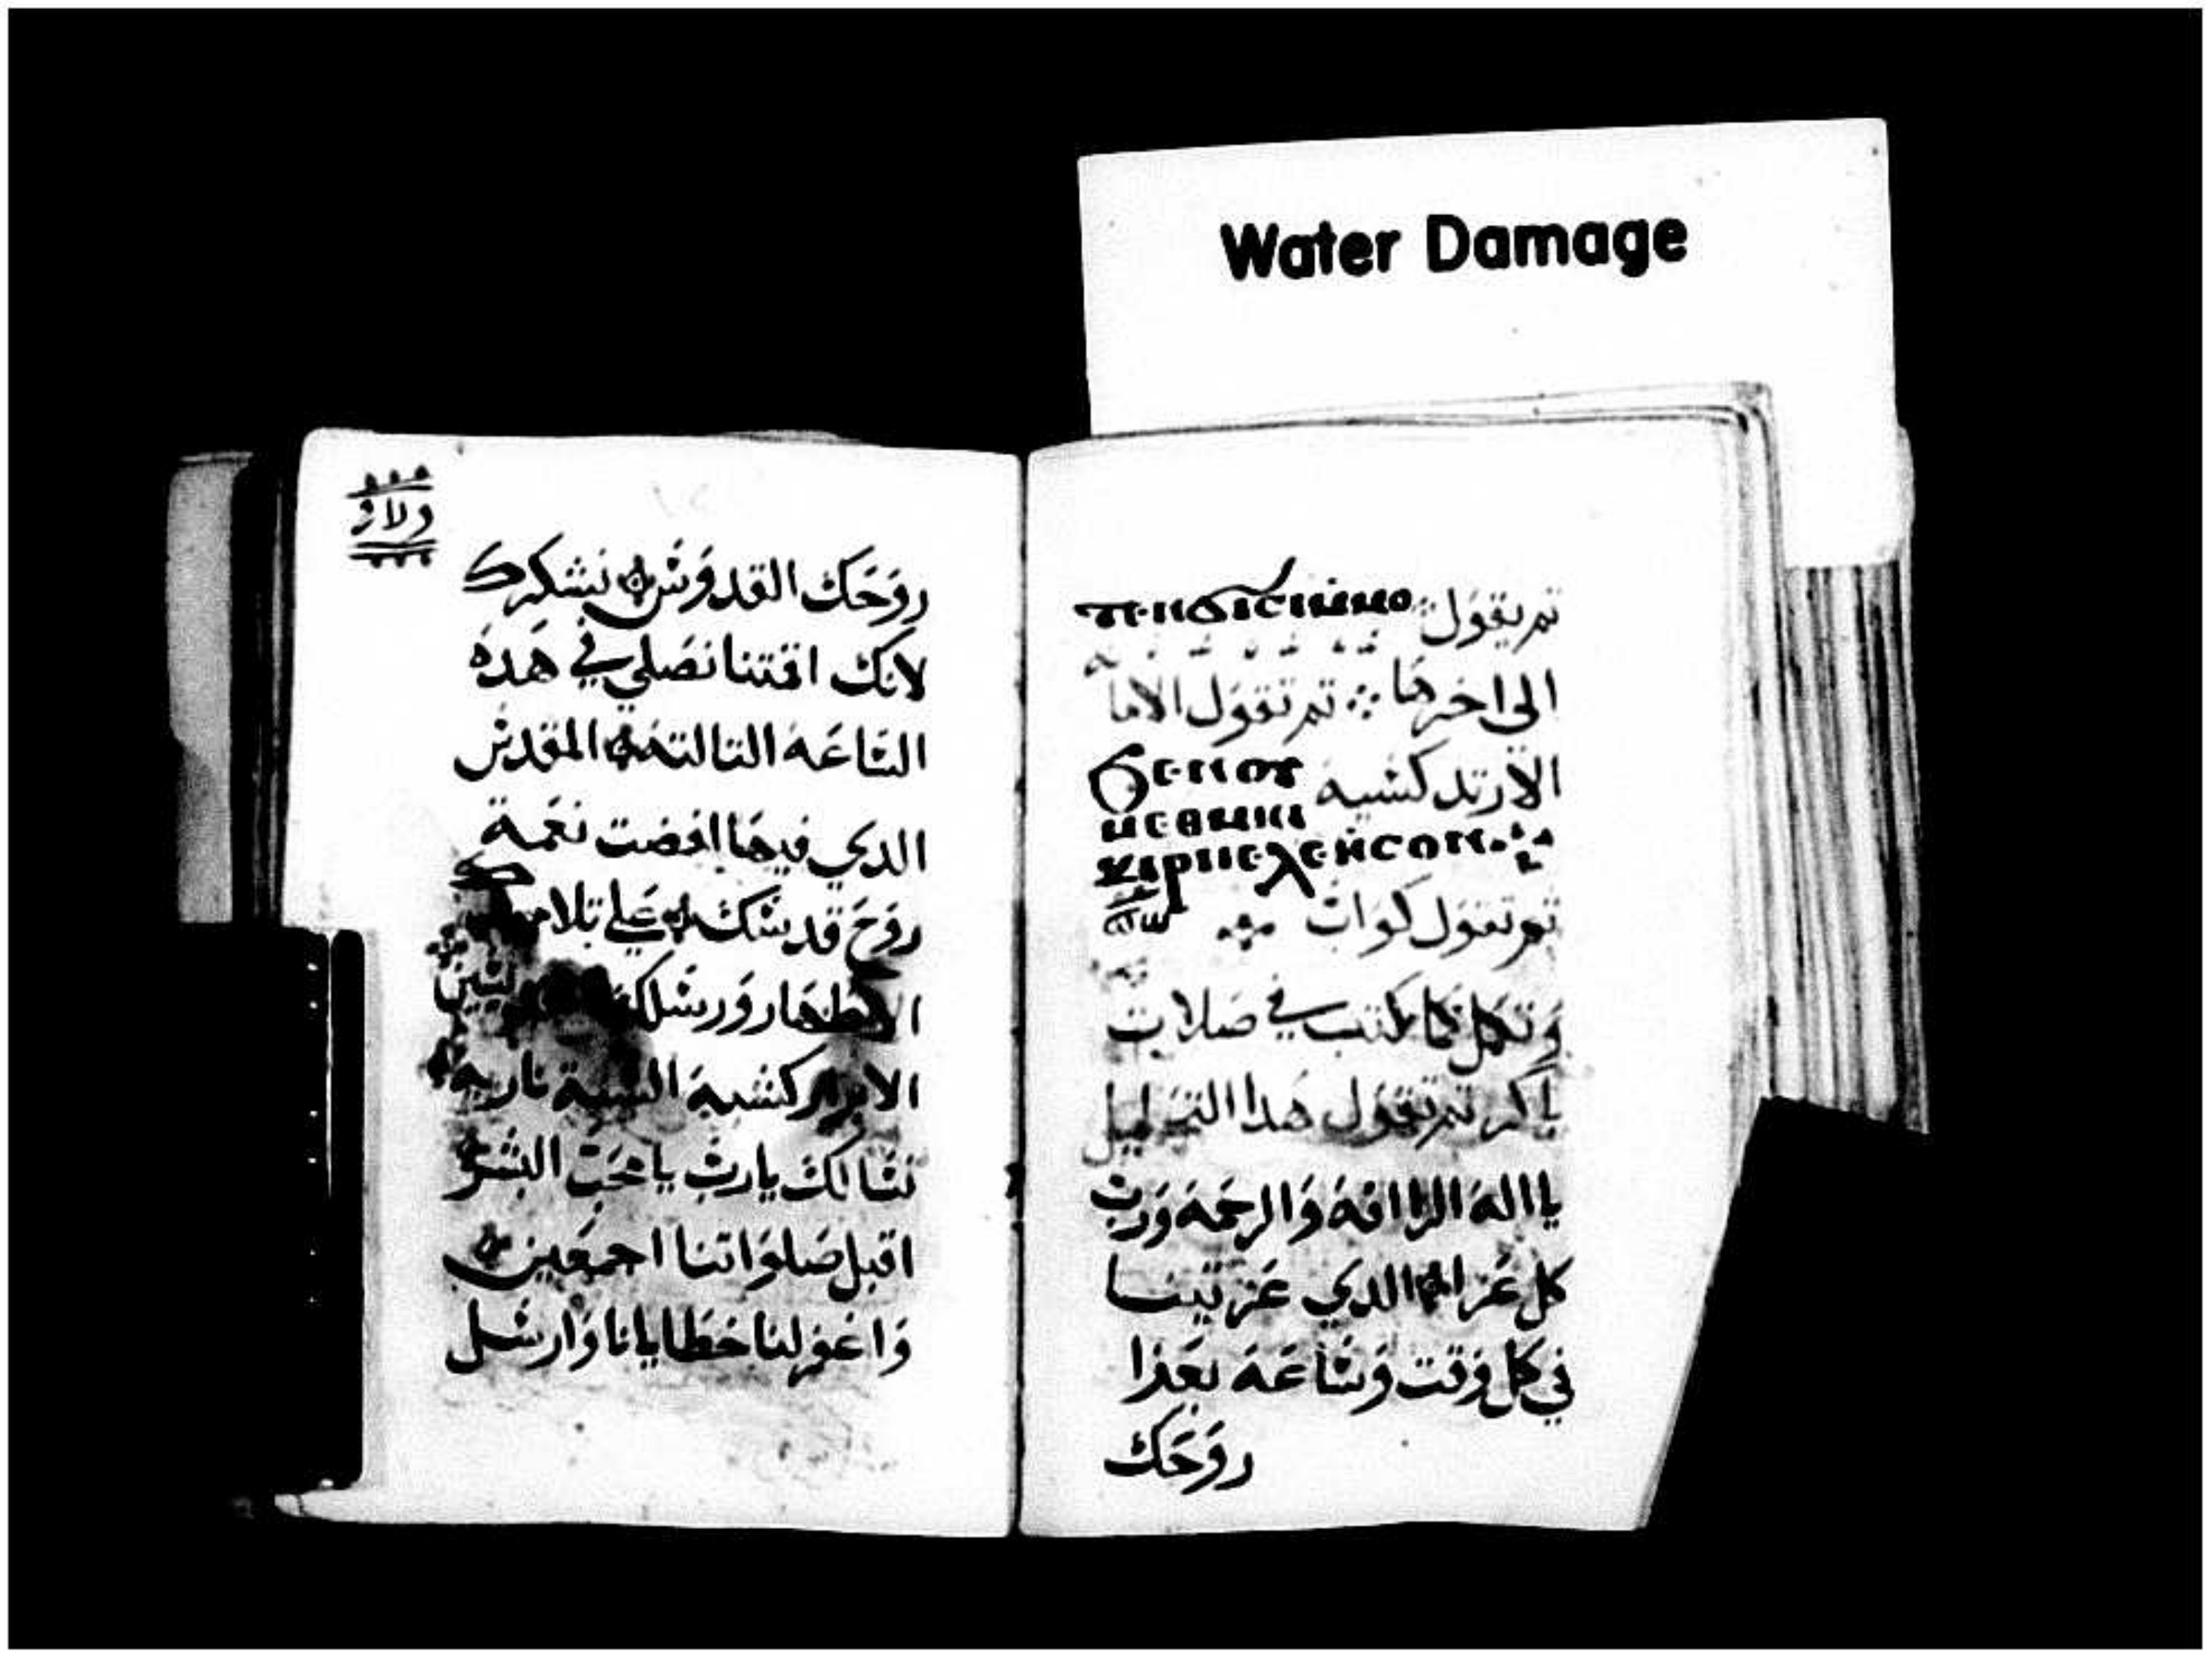 Water Damage
ثم يقول ⲧⲉⲛϭⲓⲥⲓⲙⲙⲟ
الى اخرها ܀ ثم تقول الاما
الارتدكشيه ϧⲉⲛⲟⲩ
ⲙⲉⲑⲙⲏⲓ
ⲕⲩⲣⲓⲉⲗⲉⲏⲥⲟⲛ
ثم تقول كوات
وتكمل كما كتب في صلات
باكر ثم تقول هدا التهليل
يا اله الرافة والرحمه ورب
كل عزا الدي عزيتنا
في كل وقت وساعة بعزا
روحك
روحك القدوس نشكرك
لانك اقتنا نصلي في هده
الساعة التالتة المقدس
الدي فيها افضت نعمة
روح قدسك علي تلاميدك
الاطهار ورسلك
الابرار كشبه السنة نارية
نسالك يارب يامحب البشر
اقبل صلواتنا اجمعين
واغفر لنا خطايانا وارسل